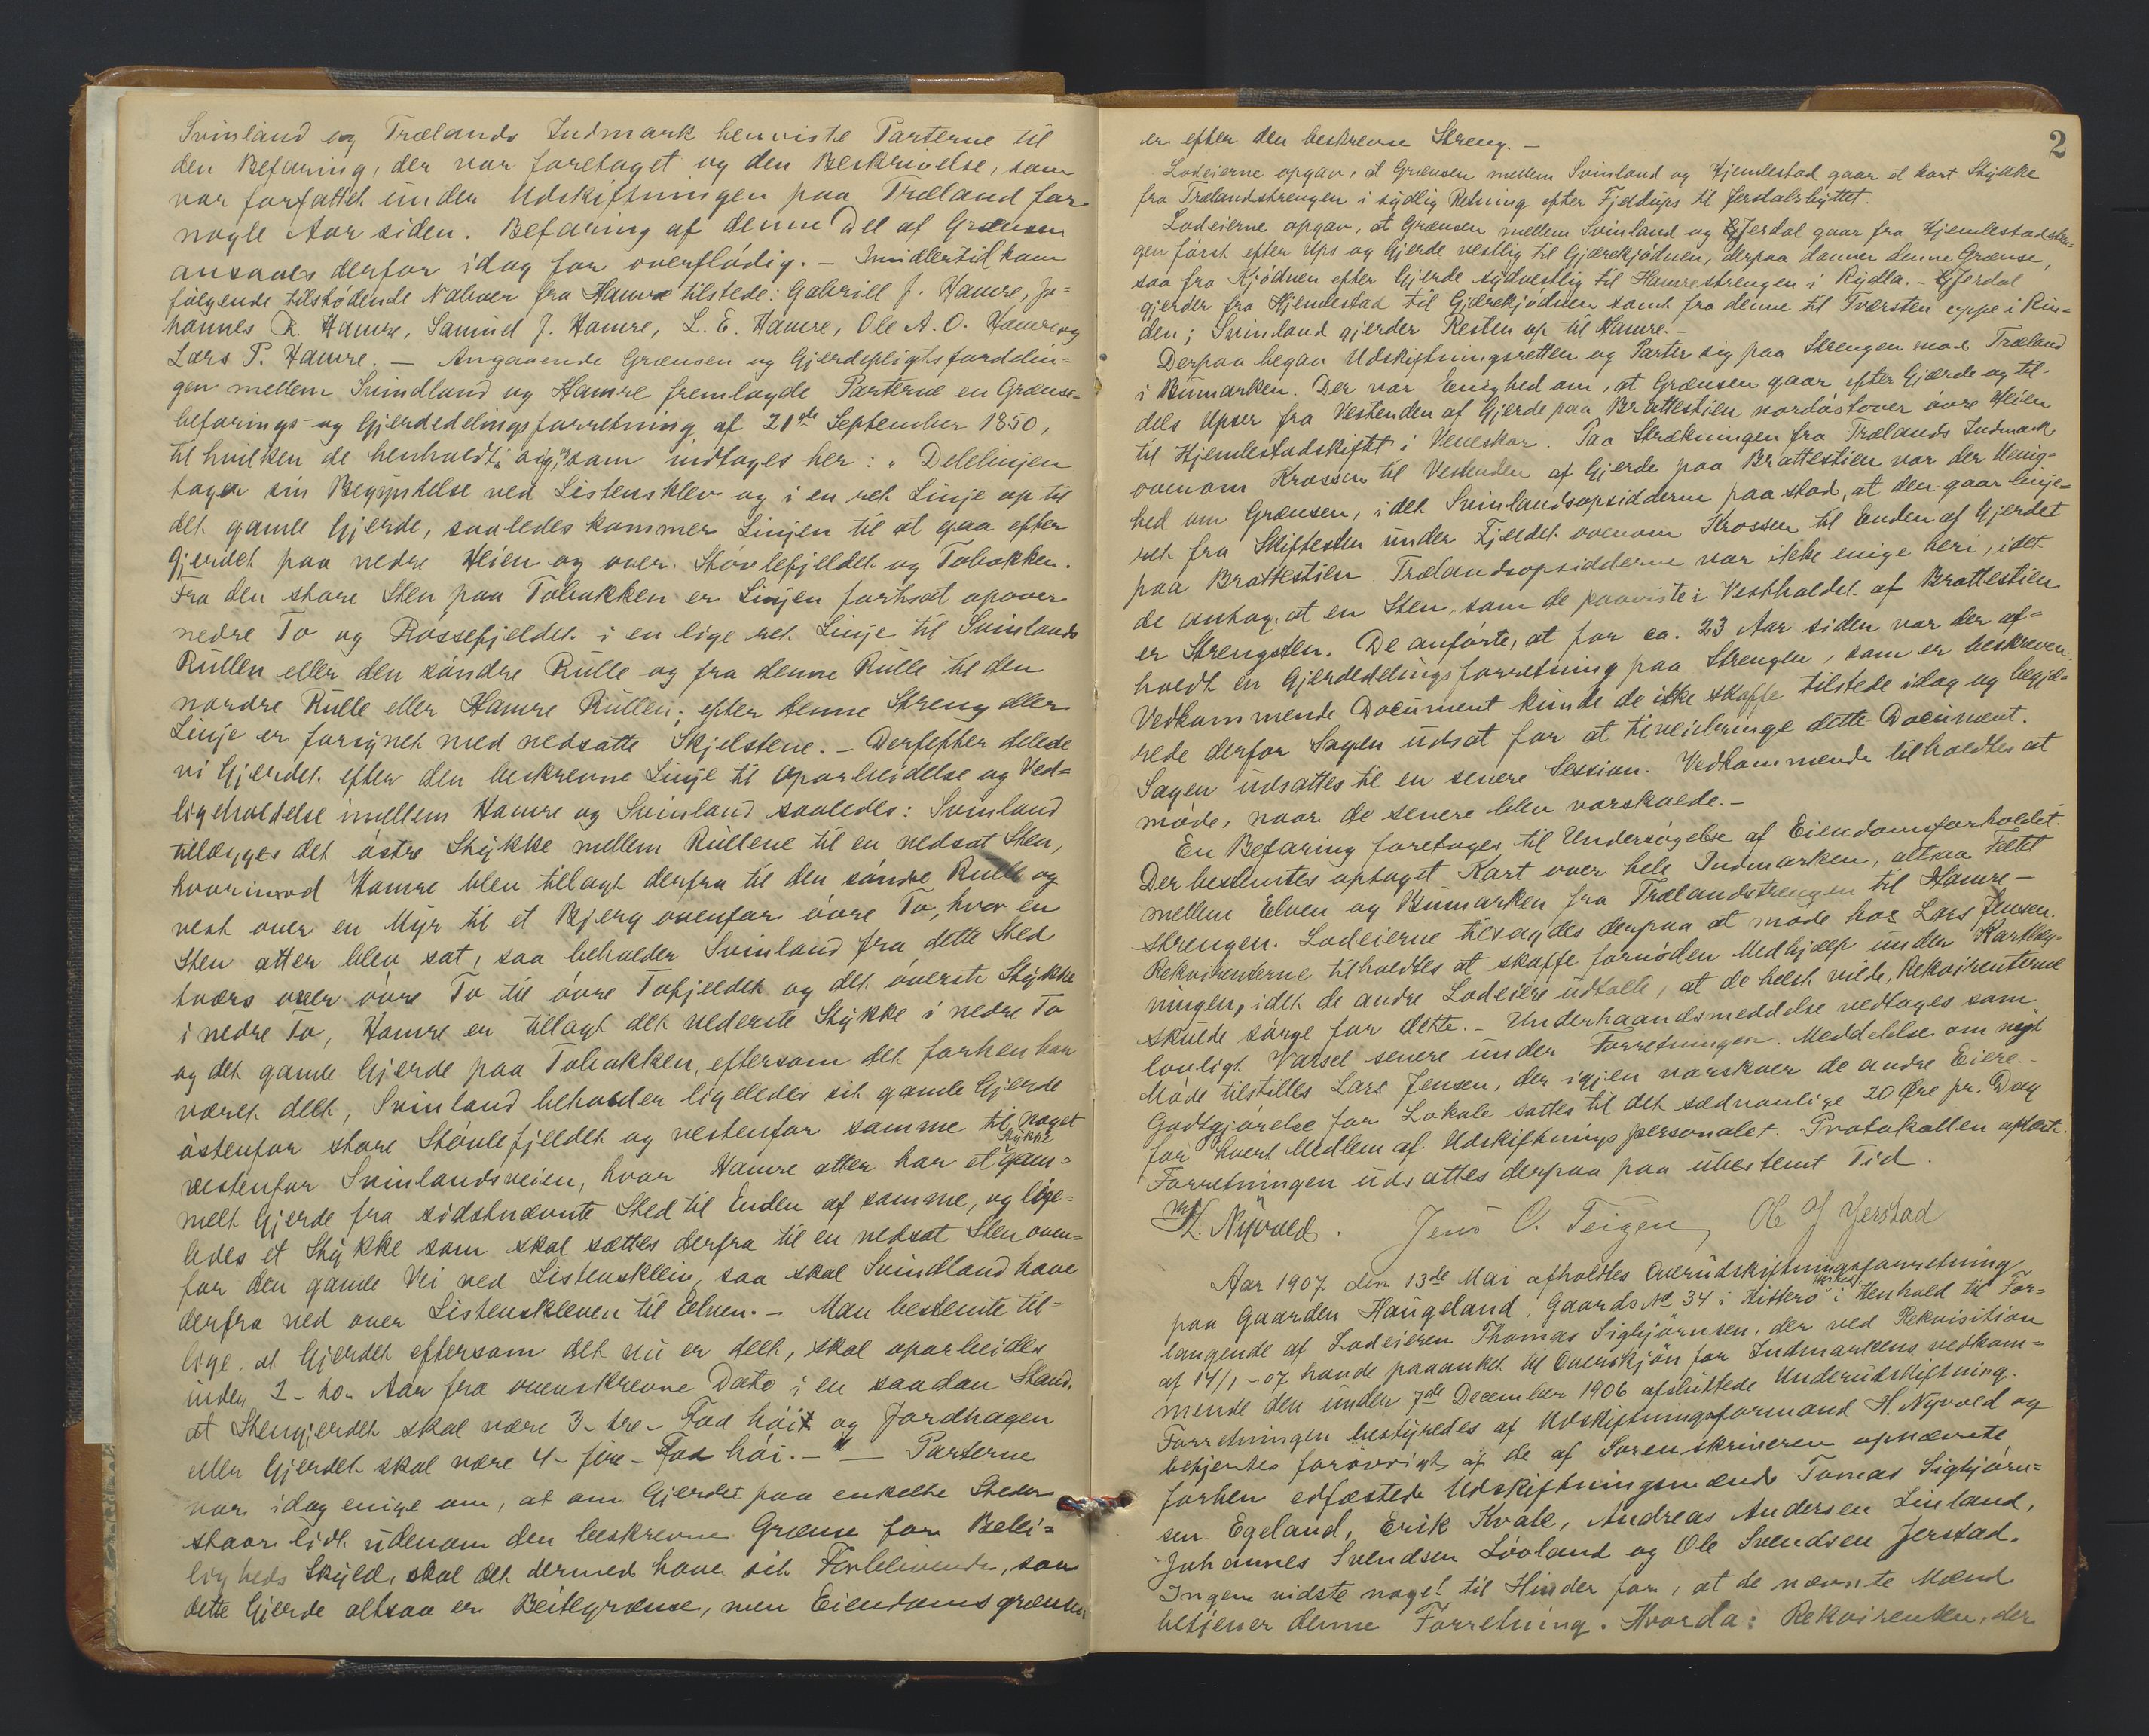 Svinland og Trælands Indmark henviste Parterne til
den Befaring, der var foretaget og den Beskrivelse, som
var forfattet under Udskiftningen paa Træland for
nogle Aar siden. Befaring af denne Del af Grænsen
ansaaes derfor idag for overflødig. – Imidlertid kom
følgende tilstødende Naboer fra Hamre tilstede: Gabriell J. Hamre, Jo=
hannes R. Hamre, Samuel J. Hamre, L. E. Hamre, Ole A. O. Hamre og
Lars P. Hamre. – Angaaende Grænsen og Gjerdepligtsfordelin=
gen mellem Svindland og Hamre fremlagde Parterne en Grænse=
befarings- og Gjerdedelingsforretning af 21de September 1850,
til hvilken de henholdt sig, som indtages her: „Delelinjen
tager sin Begyndelse ved Listensklev og i en ret Linje op til
det gamle Gjerde, saaledes kommer Linjen til at gaa efter
Gjerdet paa nedre Heien og over Støvlefjeldet og Tobakken.
Fra den store Sten paa Tobakken er Linjen fortsat opover
nedre To og Rossefjeldet i en lige ret Linje til Svinlands
Rullen eller den søndre Rulle og fra denne Rulle til den
nordre Rulle eller Hamre Rullen; efter denne Streng eller
Linje er forsynet med nedsatte Skjelstene. – Derefter delede
vi Gjerdet efter den beskrevne Linje til Oparbeidelse og Ved=
ligeholdelse imellem Hamre og Svinland saaledes: Svinland
tillægges det østre Stykke mellem Rullene til en nedsat Sten,
hvorimod Hamre blev tillagt derfra til den søndre Rulle og
vest over en Myr til et Bjerg ovenfor øvre To, hvor en
Sten atter blev sat, saa beholder Svinland fra dette Sted
tværs over øvre To til øvre Tofjeldet og det øverste Stykke
i nedre To, Hamre er tillagt det nederste Stykke i nedre To
og det gamle Gjerde paa Tobakken, eftersom det forhen har
været delt, Svinland beholder ligeledes sit gamle Gjerde
østenfor store Støvlefjeldet og vestenfor samme til noget
vestenfor Svinlandsveien, hvor Hamre atter har et Stykke gam=
melt Gjerde fra sidstnævnte Sted til Enden af samme, og lige=
ledes et Stykke som skal sættes derfra til en nedsat Sten oven=
for den gamle Vei ved Listensklein, saa skal Svindland have
derfra ned over Listenskleven til Elven. – Man bestemte til=
lige, at Gjerdet eftersom det nu er delt, skal oparbeides
inden 2 – to – Aar fra ovenskrevne Dato i en saadan Stand,
at Stengjerdet skal være 3 – tre – Fod høit og Jordhagen
eller Gjerdet skal være 4 – fire – Fod høi. –“ – Parterne
var idag enige om, at om Gjerdet paa enkelte Steder
staar lidt udenom den beskrevne Grænse for Belei=
ligheds Skyld, skal det dermed have sit Forblivende, saa
dette Gjerde altsaa er Beitegrænse, men Eiendomsgrænsen
2
er efter den beskrevne Streng. –
Lodeierne opgav, at Grænsen mellem Svinland og Hjemlestad gaar et kort Stykke
fra Trælandstrengen i sydlig Retning efter Fjeldups til Jerdalsbyttet.
Lodeierne opgav, at Grænsen mellem Svinland og Jerdal gaar fra Hjemlestadstren=
gen først efter Ups og Gjerde vestlig til Gjærekjødnen, derpaa danner denne Grænse,
saa fra Kjødnen efter Gjerde sydvestlig til Hamrestrengen i Rydla. – Jerdal
gjerder fra Hjemlestad til Gjærekjødnen samt fra denne til Tværsten oppe i Rin=
den; Svinland gjerder Resten op til Hamre. –
Derpaa begav Udskiftningsretten og Parter sig paa Strengen mod Træland
i Bumarken. Der var Enighed om, at Grænsen gaar efter Gjærde og til=
dels Upser fra Vestenden af Gjerde paa Brattestien nordøstover øvre Heien
til Hjemlestadskiftet i Veneskar. Paa Strækningen fra Trælands Indmark
ovenom Krossen til Vestenden af Gjerde paa Brattestien var der Uenig=
hed om Grænsen, idet Svinlandsopsidderne paastod, at den gaar linje=
ret fra Skiftesten under Fjeldet ovenom Krossen til Enden af Gjerdet
paa Brattestien. Trælandsopsidderne var ikke enige heri, idet
de antog, at en Sten, som de paaviste i Vestholdet af Brattestien
er Strengsten. De anførte, at for ca. 23 Aar siden var der af=
holdt en Gjerdedelingsforretning paa Strengen, som er beskreven.
Vedkommende Document kunde de ikke skaffe tilstede idag og begjæ=
rede derfor Sagen udsat for at tilveiebringe dette Document.
Sagen udsattes til en senere Session. Vedkommende tilholdtes at
møde, naar de senere blev varskuede. –
En Befaring foretages til Undersøgelse af Eiendomsforholdet.
Der bestemtes optaget Kart over hele Indmarken, altsaa Feltet
mellem Elven og Bumarken fra Trælandstrengen til Hamre –
strengen. Lodeierne tilsagdes derpaa at møde hos Lars Jensen.
Rekvirenterne tilholdtes at skaffe fornøden Medhjælp under Kartlæg=
ningen, idet de andre Lodeiere udtalte, at de helst vilde, Rekvirenterne
skulde sørge for dette. – Underhaandsmeddelelse vedtages som
lovligt Varsel senere under Forretningen. Meddelelse om nyt
Møde tilstilles Lars Jensen, der igjen varskoer de andre Eiere. –
Godtgjørelse for Lokale sattes til det sædvanlige 20 Øre pr. Dag
for hvert Medlem af Udskiftningspersonalet. Protokollen oplæst.
Forretningen udsattes derpaa paa ubestemt Tid.
H. Nyvold. Jens O. Teigen Ole J Jerstad
Aar 1907 den 13de Mai afholdtes Overudskiftningsforretning
paa Gaarden Haugeland, Gaards No 34 i Hitterø Herred i Henhold til For=
langende af Lodeieren Thomas Sigbjørnsen, der ved Rekvisition
af 14/1 – 07 havde paaanket til Overskjøn for Indmarkens vedkom=
mende den under 7de December 1906 afsluttede Underudskiftning.
Forretningen bestyredes af Udskiftningsformand H. Nyvold og
betjentes forøvrigt af de af Sorenskriveren opnævnte
forhen edfæstede Udskiftningsmænd Tomas Sigbjørn=
sen Egeland, Erik Kvale, Andreas Andersen Linland,
Johannes Svendsen Løvland og Ole Svendsen Jerstad.
Ingen vidste noget til Hinder for, at de nævnte Mænd
betjener denne Forretning. Hvorda: Rekvirenten, der